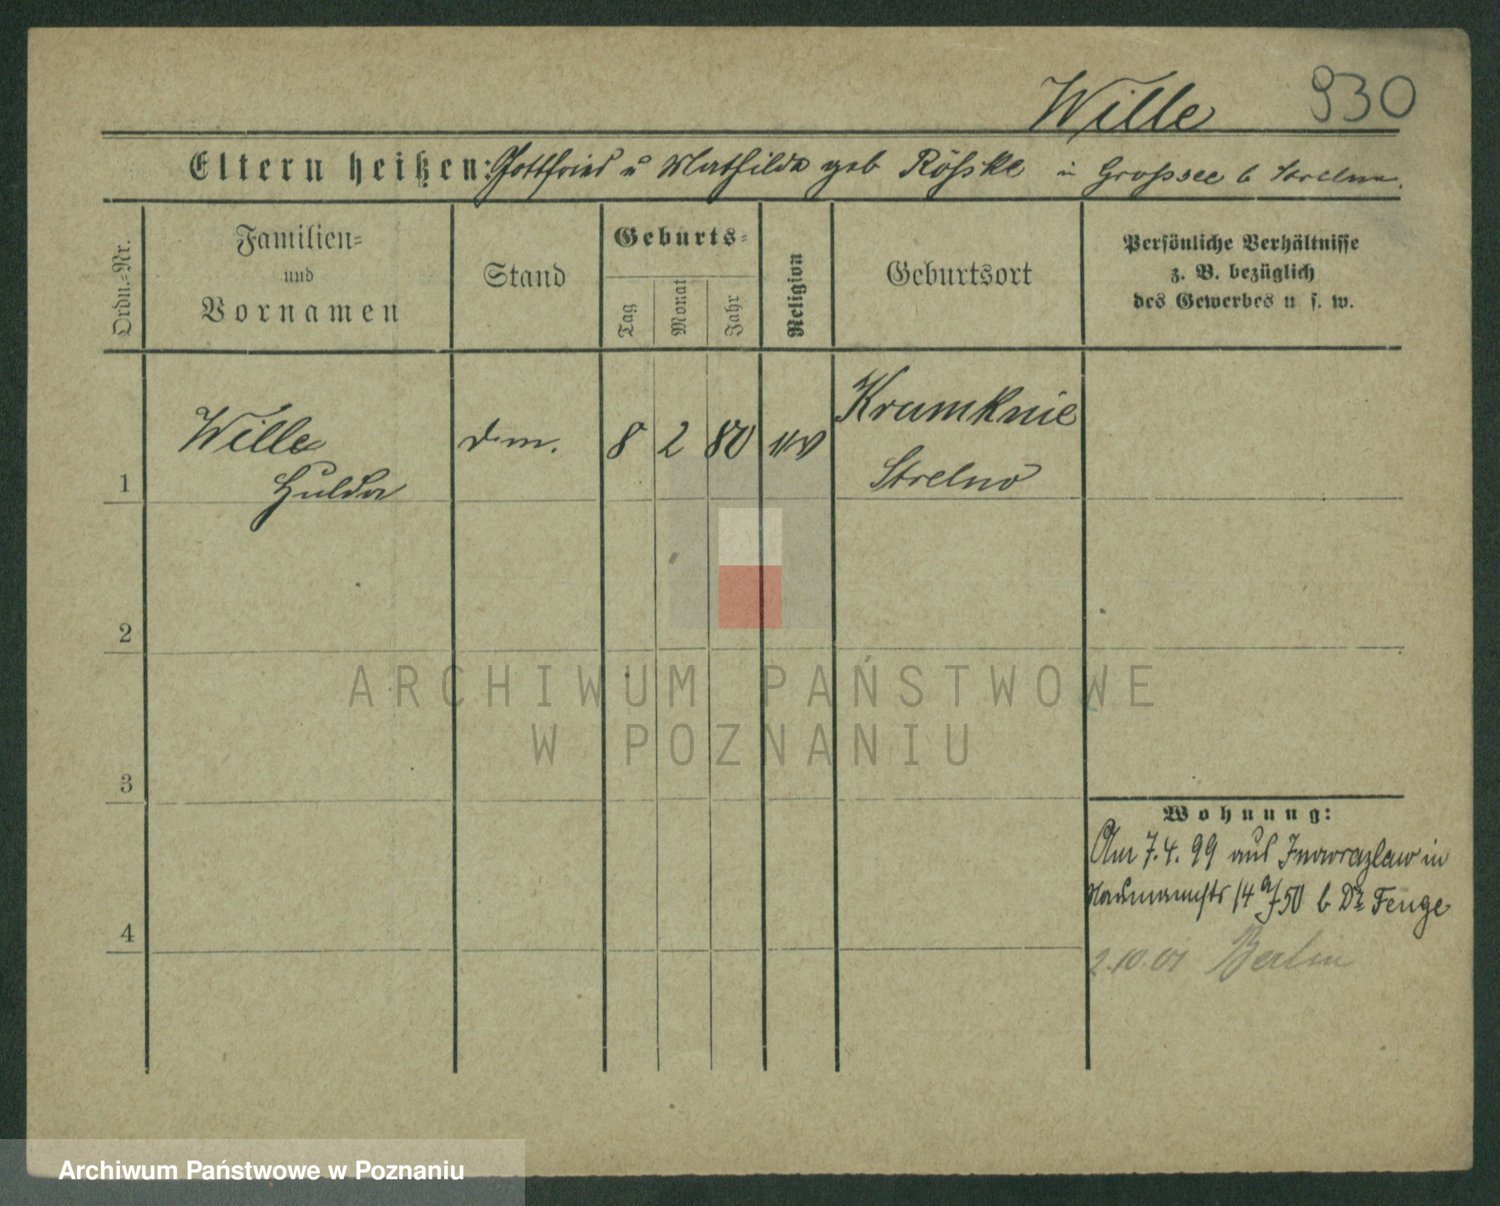 Wille 930
Eltern heißen: Gottfried u Mathilde geb Röske in Grossee b Strelno.
Ordn.=Nr.
Familien=
und
Vornamen
Stand
Geburts=
Tag
Monat
Jahr
Religion
Geburtsort
Persönliche Verhältnisse
z. B. bezüglich
des Gewerbes u. s. w.
1
Wille
Hulda
8 2 80
Krumknie
Strelno
2
3
4
Wohnung:
Am 7.4.99 aus Inowrazlaw in
Naumannstr 14 a/50 b Dr Fenge
2.10.01 Berlin
ARCHIWUM PAŃSTWOWE
W POZNANIU
Archiwum Państwowe w Poznaniu